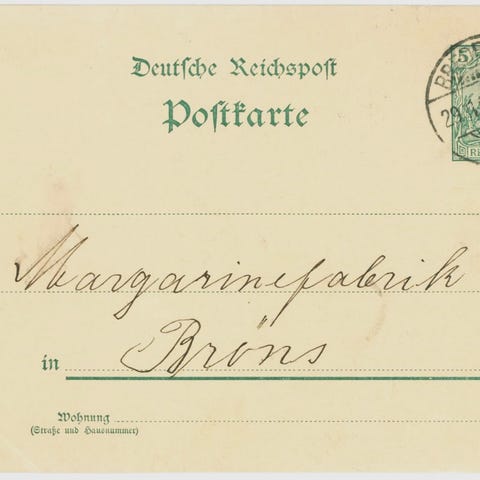 Deutsche Reichspost
Postkarte
5
29.
Margarinefabrik
in Bröns
Wohnung
(Straße und Hausnummer)